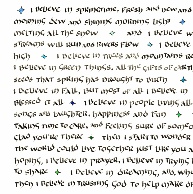 I believe in springtime, fresh and new and
morning dew and shining morning light
melting all the snow and I believe w
streams will run and rivers flow I believe
high I believe in trees and mountains re
I believe in green things, all the gifts of earth
seeds that spring has brought to birth
I believe in fall, but most of all I believe in
blessed it all I believe in people living all
songs and laughter, happiness and fun
taking time to care, and feeling sure of someo
glad you're there then I dare to wonder
the world could live together just like you a
hoping, I believe in prayer, I believe in trying
to share I believe in dreaming, all, wh
then I believe in trusting God to help make